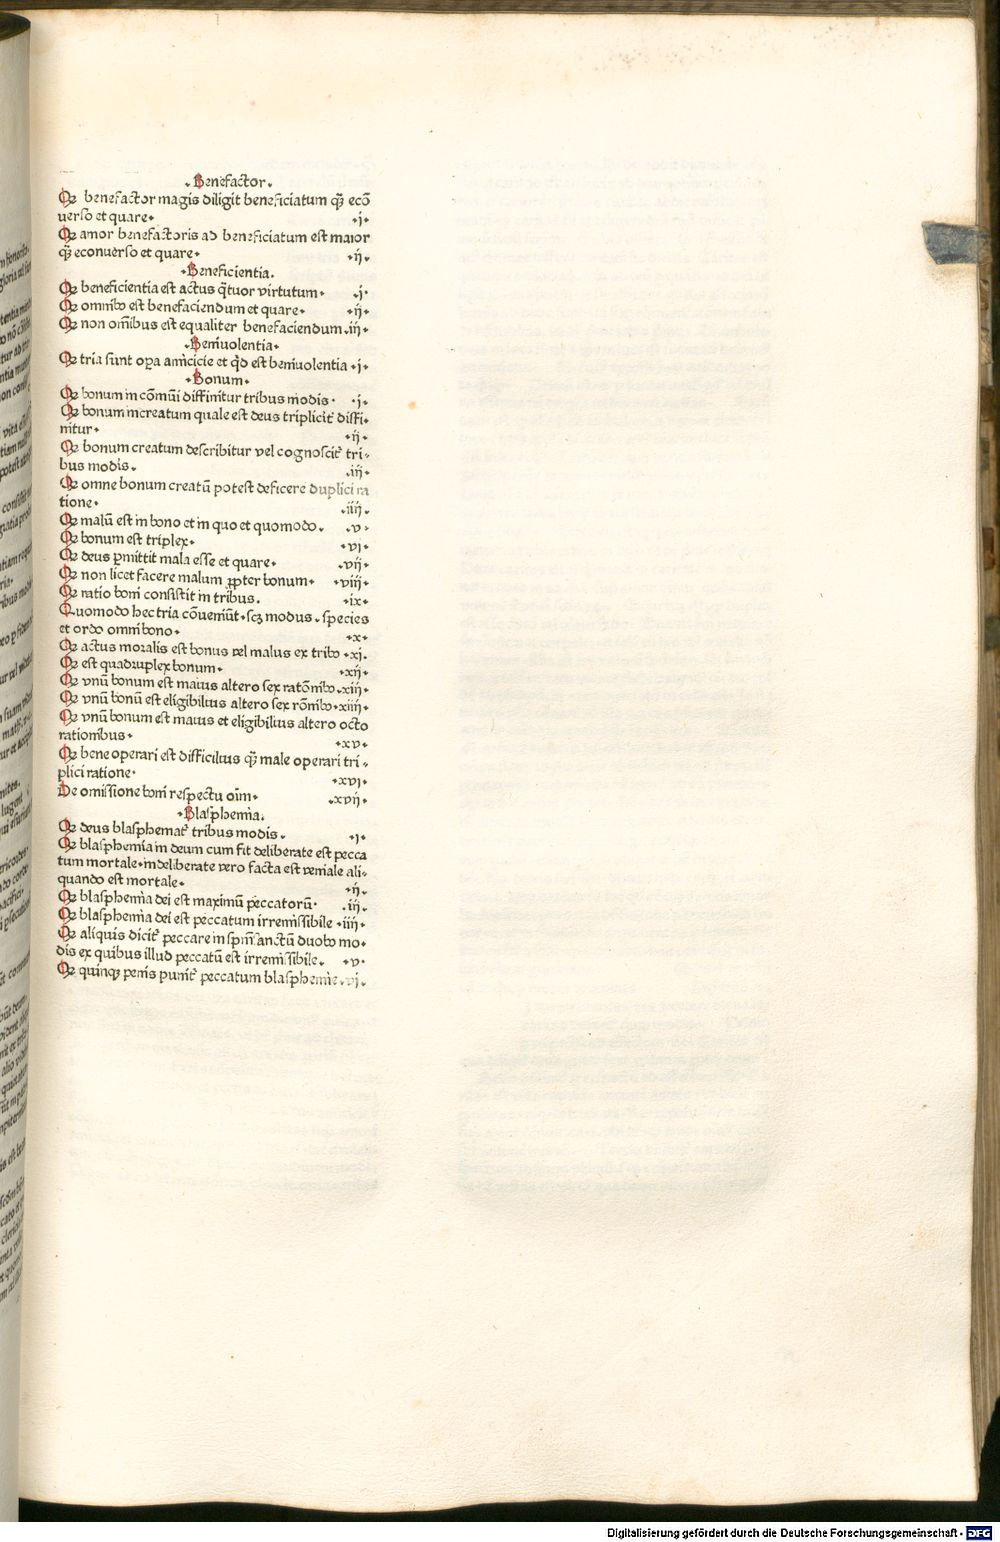 .Benefactor.
Qꝫ benefactor magis diligit beneficiatum q̃ꝫ ecõ
uerso et quare. .i.
Qꝫ amor benefactoris ad beneficiatum est maior
q̃ꝫ econuerso et quare. .ij.
.Beneficientia.
Qꝫ beneficientia est actus q̃tuor virtutum. .i.
Qꝫ omnibꝰ est benefaciendum et quare. .ij.
Qꝫ non oĩbus est equaliter benefaciendum .iij.
.Beniuolentia.
Qꝫ tria sunt oꝑa amicicie et qͥd est beniuolentia .i.
.Bonum.
Qꝫ bonum in cõmũi diffinitur tribus modis. .i.
Qꝫ bonum increatum quale est deus triplicit᷑ diffi-
nitur. .ij.
Qꝫ bonum creatum describitur vel cognoscit᷑ tri-
bus modis. .iij.
Qꝫ omne bonum creatũ potest deficere duplici ra
tione. .iiij.
Qꝫ malũ est in bono et in quo et quomodo. .v.
Qꝫ bonum est triplex. .vi.
Qꝫ deus ꝑmittit mala esse et quare. .vij.
Qꝫ non licet facere malum ꝓpter bonum. .viij.
Qꝫ ratio boni consistit in tribus. .ix.
Quomodo hec tria cõueniũt. scꝫ modus. species
et ordo omni bono. .x.
Qꝫ actus moralis est bonus vel malus ex tribꝰ .xi.
Qꝫ est quadruplex bonum. .xij.
Qꝫ vnũ bonum est maius altero sex ratõnibꝰ .xiij.
Qꝫ vnũ bonũ est eligibilius altero sex rõnibꝰ .xiiij.
Qꝫ vnũ bonum est maius et eligibilius altero octo
rationibus. .xv.
Qꝫ bene operari est difficilius q̃ꝫ male operari tri-
plici ratione. .xvi.
De omissione boni respectu oĩm. .xvij.
.Blasphemia.
Qꝫ deus blasphemat᷑ tribus modis. .i.
Qꝫ blasphemia in deum cum fit deliberate est pecca
tum mortale. indeliberate vero facta est veniale ali-
quando est mortale. .ij.
Qꝫ blasphemia dei est maximũ peccatorũ. .iij.
Qꝫ blasphemia dei est peccatum irremissibile .iiij.
Qꝫ aliquis dicit᷑ peccare in spm̃ sanctũ duobꝰ mo-
dis ex quibus illud peccatũ est irremissibile. .v.
Qꝫ quinqꝫ penis punit᷑ peccatum blasphemie .vi.
Digitalisierung gefördert durch die Deutsche Forschungsgemeinschaft - DFG